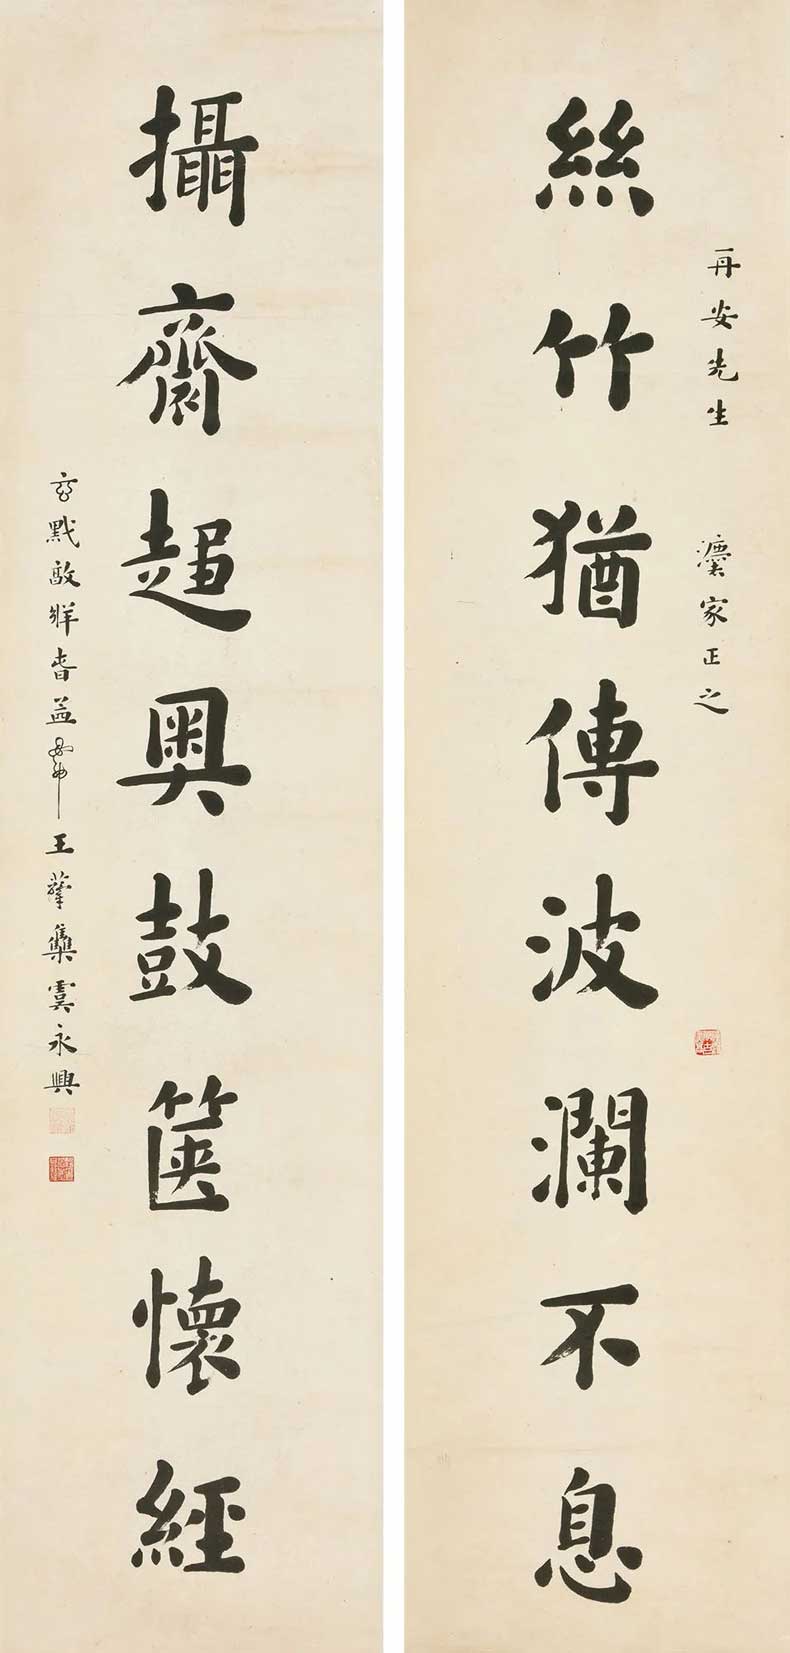 再安先生 灋家正之
絲竹猶傳波瀾不息
攝齊趨奧鼓篋懷經
玄黓敦牂春 王 集虞永興